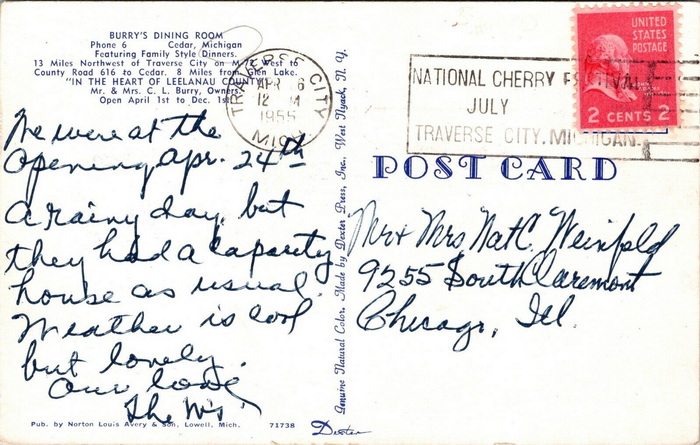 BURRY'S DINING ROOM
Phone 6 Cedar, Michigan
Featuring Family Style Dinners.
13 Miles Northwest of Traverse City on M-72 West to
County Road 616 to Cedar. 8 Miles from Glen Lake.
"IN THE HEART OF LEELANAU COUNTY"
Mr. & Mrs. C. L. Burry, Owners
Open April 1st to Dec. 1st
We were at the
Opening Apr. 24th
a rainy day, but
they had a capacity
house as usual.
Weather is cool
but lovely.
Our love
The W's
Pub. by Norton Louis Avery & Son, Lowell, Mich. 71738
Dexter
Genuine Natural Color. Made by Dexter Press, Inc., West Nyack, N. Y.
TRAVERSE CITY
APR 6
12 M
1955
MICH
NATIONAL CHERRY FESTIVAL
JULY
TRAVERSE CITY, MICHIGAN
UNITED
STATES
POSTAGE
2 CENTS 2
POST CARD
Mr + Mrs Nat C. Weinfeld
9255 South Claremont
Chicago, Ill.